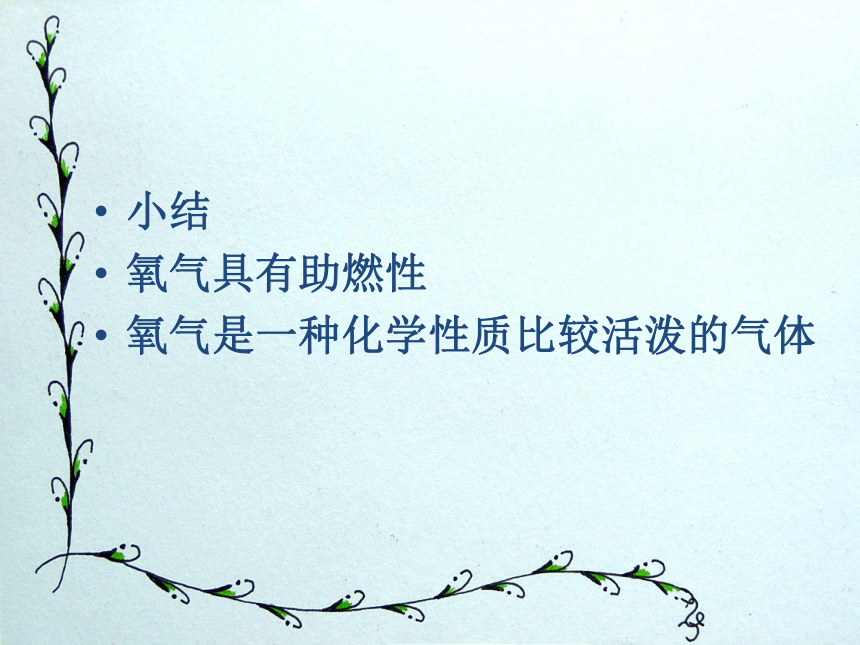 • 小结
• 氧气具有助燃性
• 氧气是一种化学性质比较活泼的气体